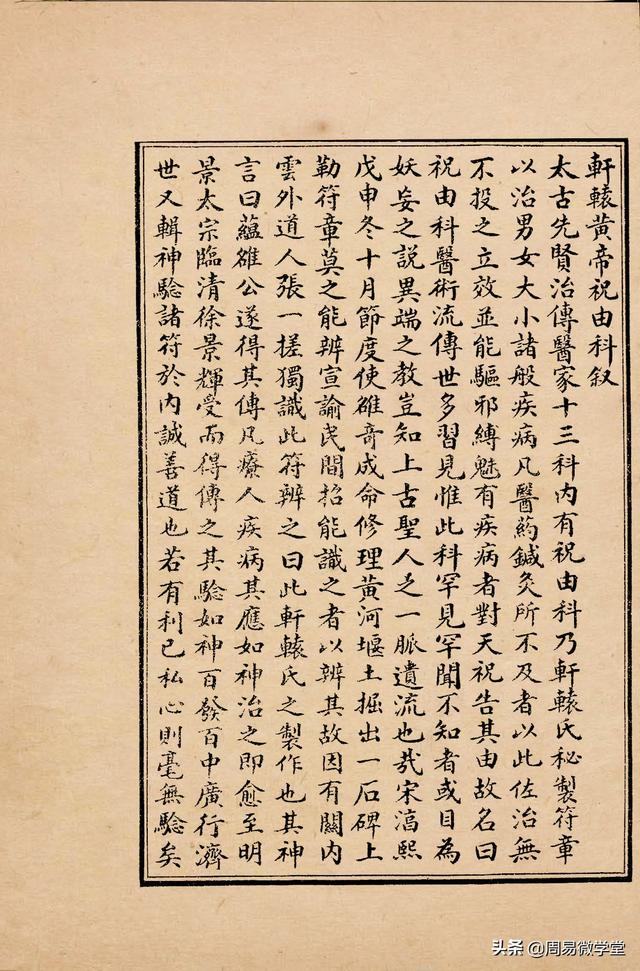 軒轅黃帝祝由科叙
太古先賢治傳醫家十三科内有祝由科乃軒轅氏秘製符章
以治男女大小諸般疾病凡醫药鍼灸所不及者以此佐治無
不投之立效並能驅邪縛魅有疾病者對天祝告其由故名曰
祝由科醫術流傳世多習見惟此科罕見罕聞不知者或目為
妖妄之説異端之教豈知上古聖人之一脈遺流也哉宋淳熙
戊申冬十月節度使雒奇成命修理黃河堰土掘出一石碑上
勒符章莫之能辨宣諭民間招能識之者以辨其故因有關内
雲外道人張一搓獨識此符辨之曰此軒轅氏之製作也其神
言曰蘊雒公遂得其傳凡療人疾病其應如神治之即愈至明
景太宗臨清徐景輝受而得傳之其騐如神百發百中廣行濟
世又輯神騐諸符於内誠善道也若有利己私心則毫無騐矣
头条@周易微学堂